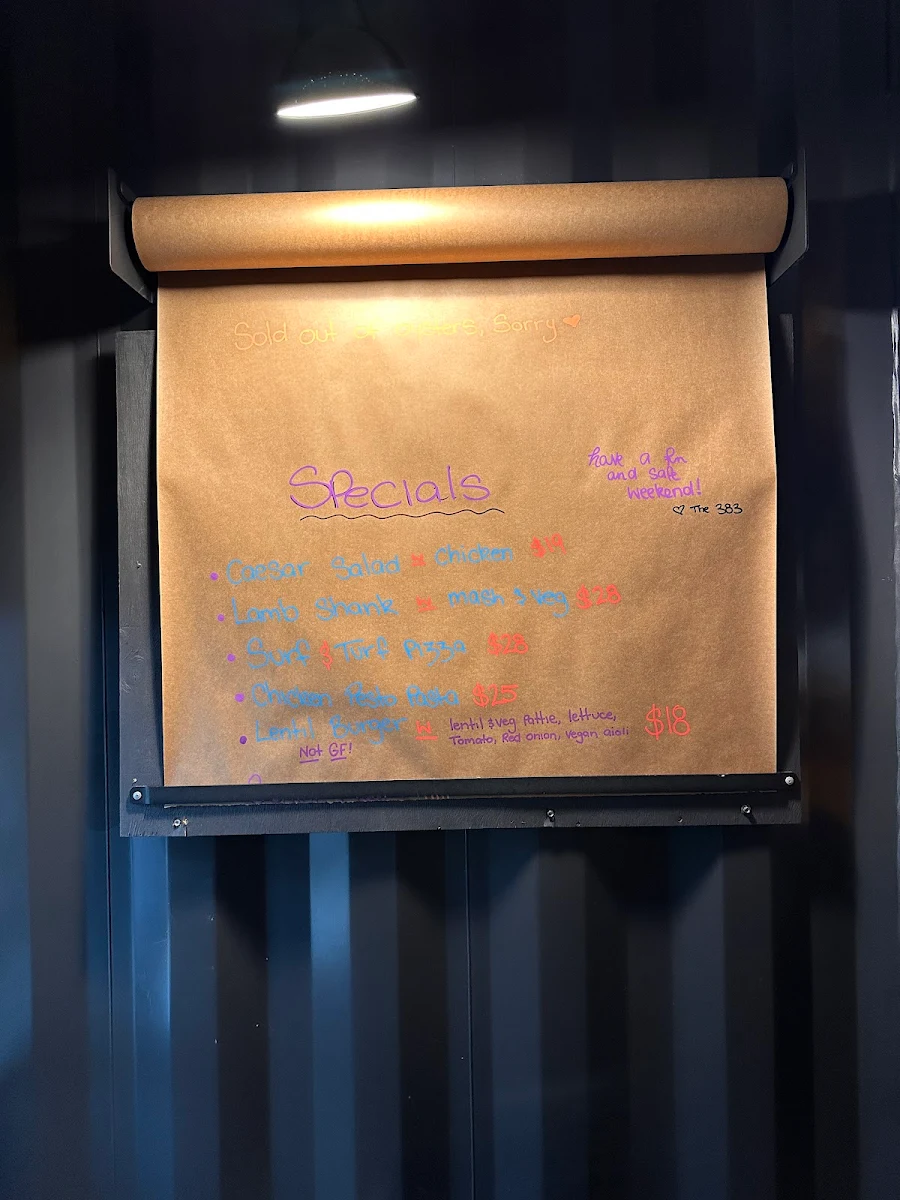 Sold out of oysters, Sorry ♥
have a fun
and safe
weekend!
♡ The 383
Specials
• Caesar Salad w Chicken $19
• Lamb Shank w mash & veg $28
• Surf & Turf Pizza $28
• Chicken Pesto Pasta $25
• Lentil Burger w lentil & veg Pattie, lettuce, Tomato, Red onion, Vegan aioli $18
Not GF!